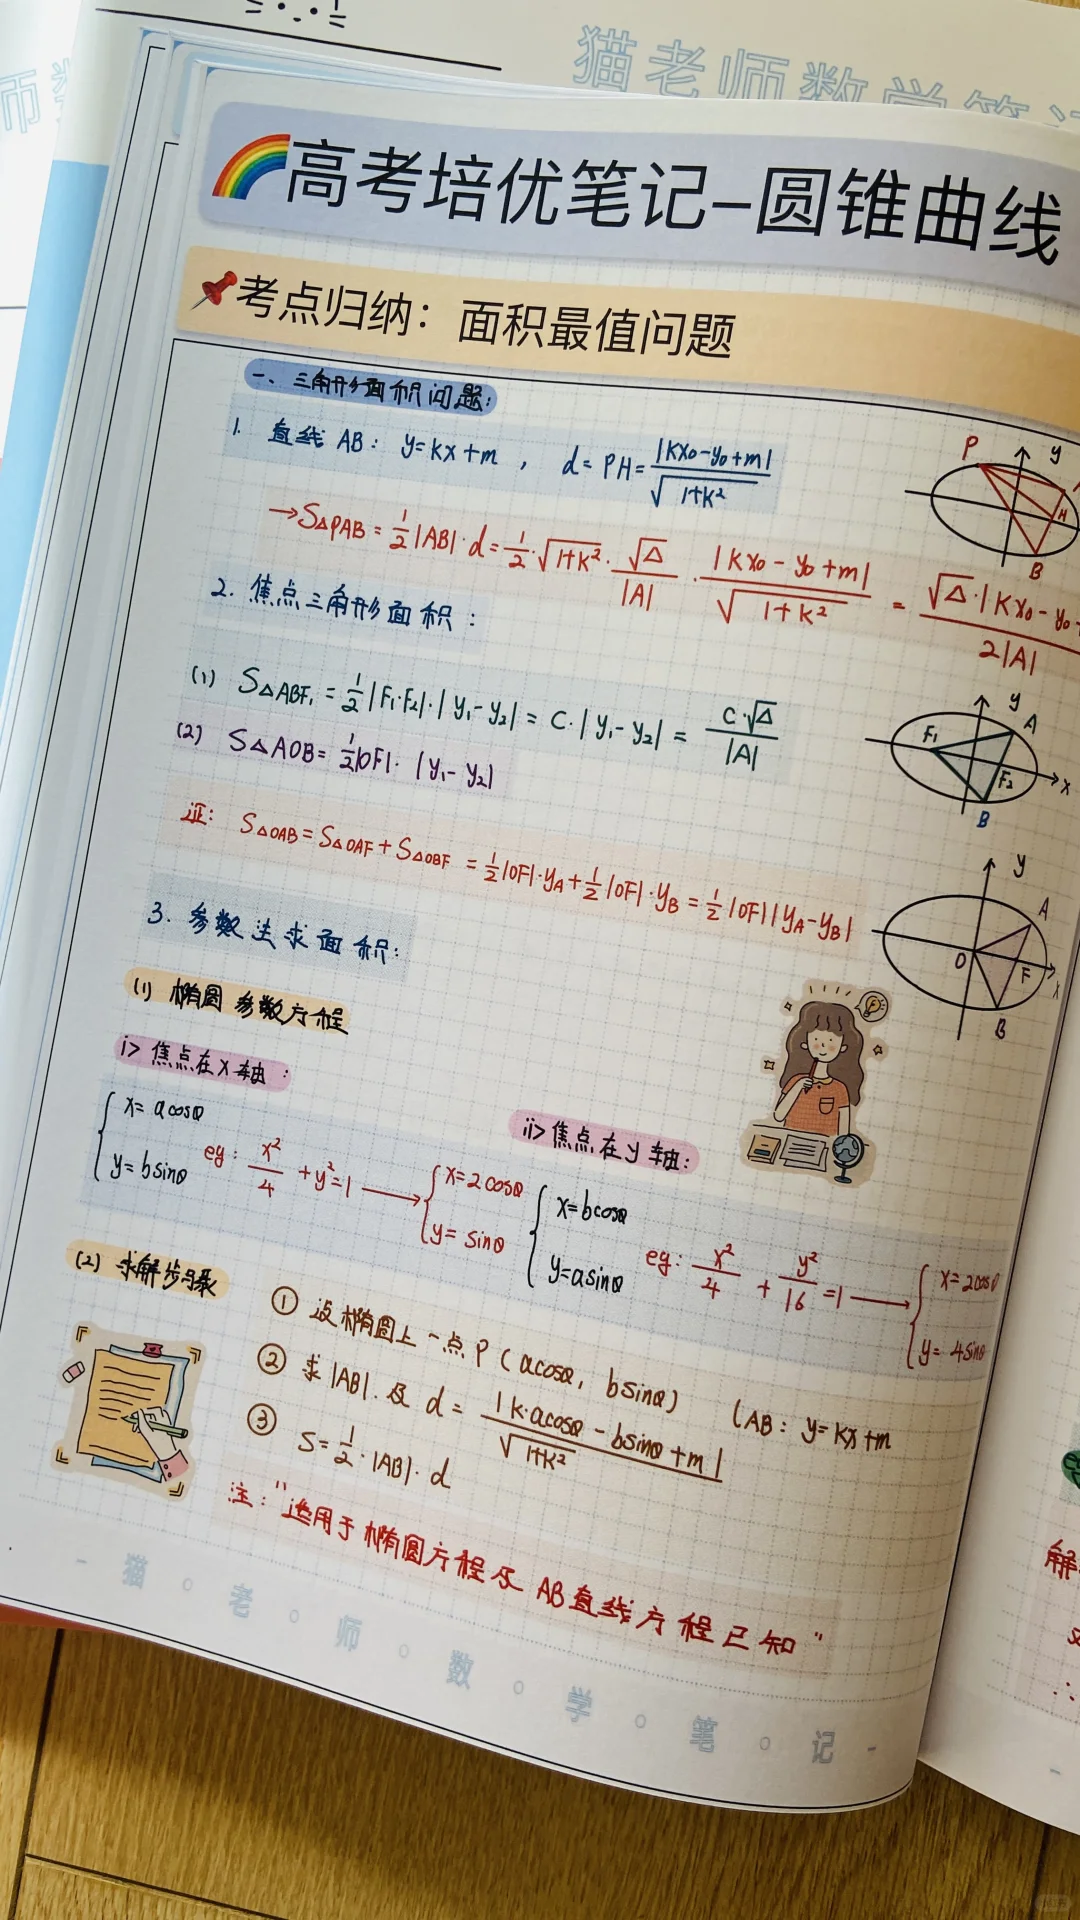 猫老师数学笔记
高考培优笔记-圆锥曲线
考点归纳：面积最值问题
一、三角形面积问题：
1. 直线 AB： y=kx+m ， d=PH=|kx₀-y₀+m|/√(1+k²)
→S△PAB=1/2|AB|·d=1/2·√(1+k²)·√Δ/|A|·|kx₀-y₀+m|/√(1+k²)=√Δ·|kx₀-y₀+/2|A|
P y H B
2. 焦点三角形面积：
(1) S△ABF₁=1/2|F₁·F₂|·|y₁-y₂|=C·|y₁-y₂|=C·√Δ/|A|
(2) S△AOB=1/2|OF|·|y₁-y₂|
y A F₁ F₂ x B
证： S△OAB=S△OAF+S△OBF=1/2|OF|·yA+1/2|OF|·yB=1/2|OF||yA-yB|
y A O F x B
3. 参数法求面积：
(1) 椭圆参数方程
i> 焦点在x轴：
{x=acosθ
y=bsinθ
eg：x²/4+y²=1→{x=2cosθ
y=sinθ
ii> 焦点在y轴：
{x=bcosθ
y=asinθ
eg：x²/4+y²/16=1→{x=2cosθ
y=4sinθ
(2) 求解步骤
① 设椭圆上一点P(acosθ, bsinθ)
② 求|AB|.及 d=|k·acosθ-bsinθ+m|/√(1+k²) (AB：y=kx+m
③ S=1/2·|AB|·d
注："适用于椭圆方程及AB直线方程已知"
- 猫。老。师。数。学。笔。记 -
解
∴